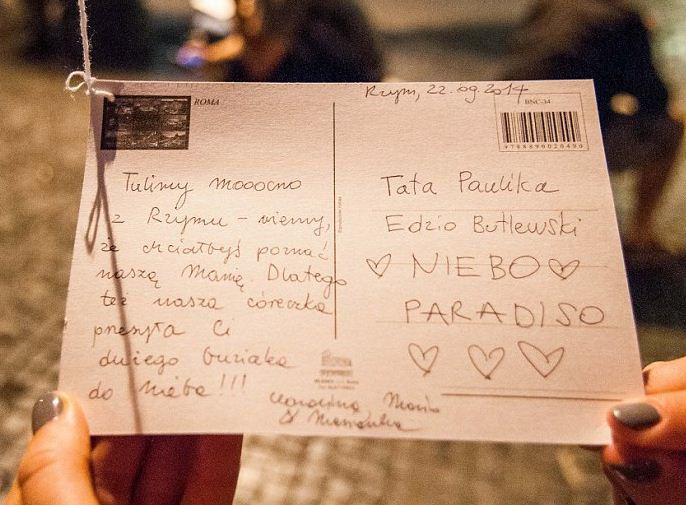 Rzym, 22.09.2014
ROMA
BNC-34
9788890020490
Tulimy mooocno
z Rzymu - wiemy,
że chciałbyś poznać
naszą Manię Dlatego
też nasza córeczka
przesyła Ci
dużego buziaka
do nieba!!!
Tata Paulika
Edzio Butlewski
♡ NIEBO ♡
PARADISO
♡ ♡ ♡
Mania